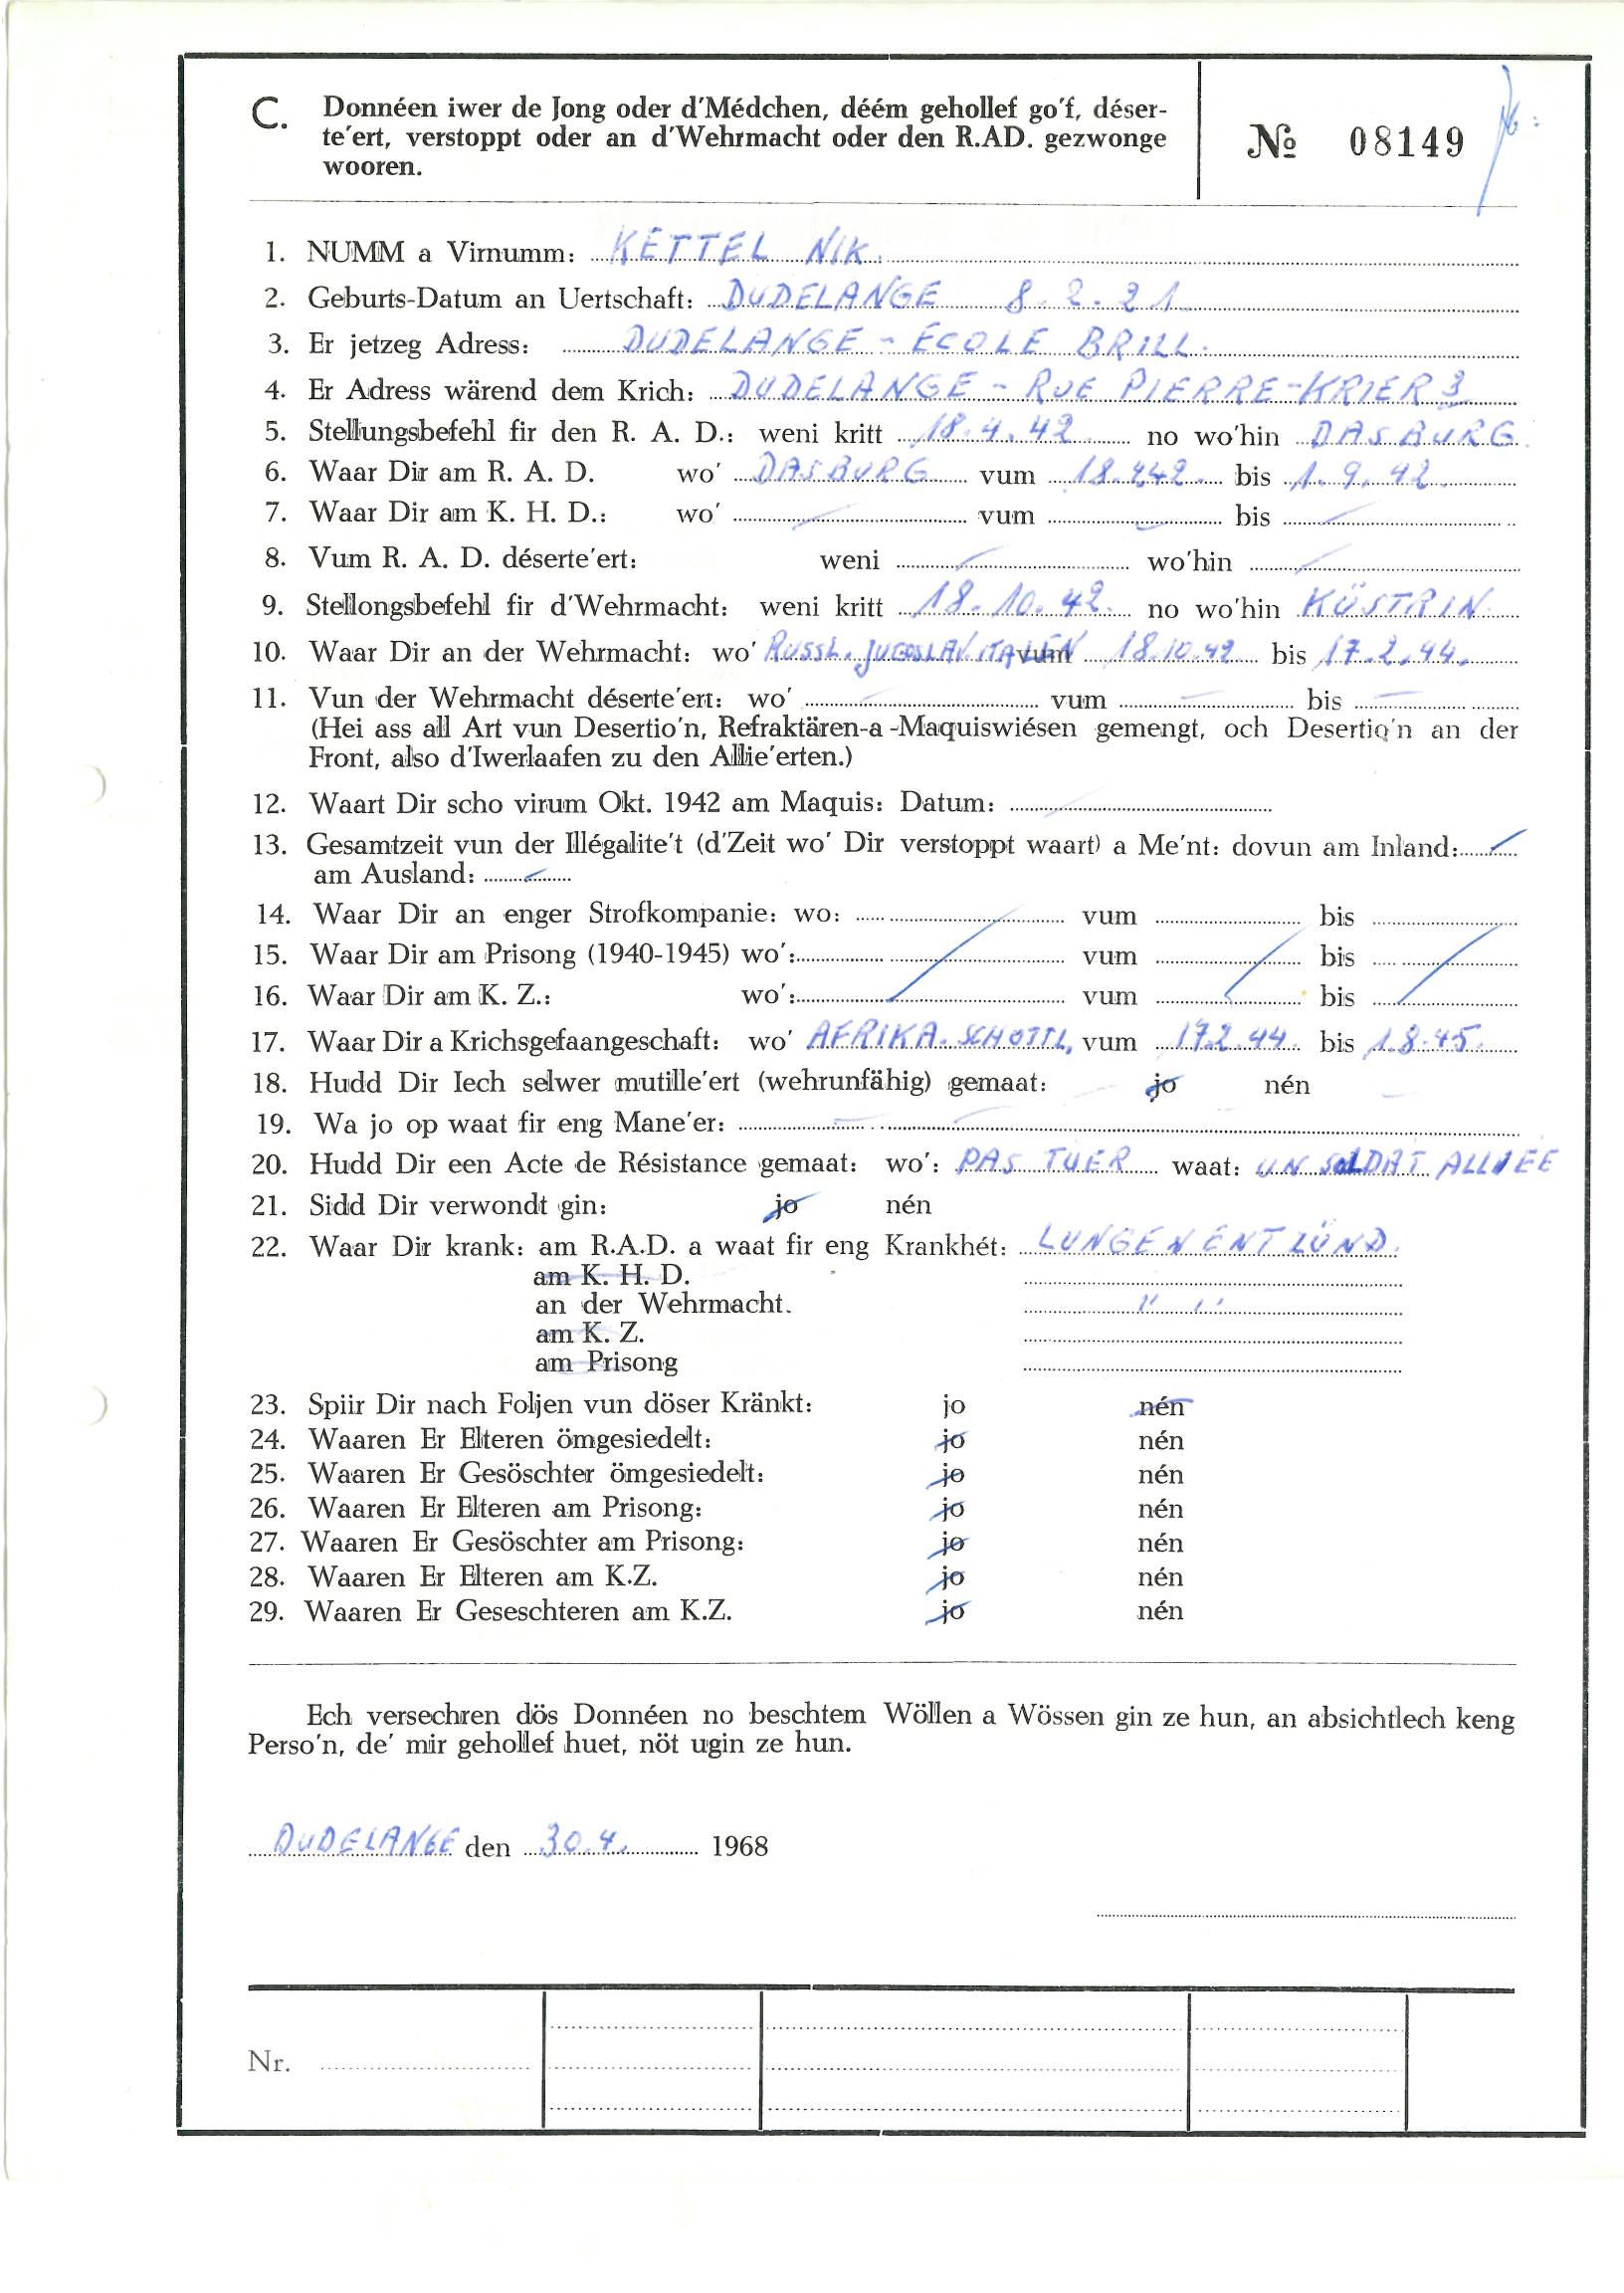 C. Donnéen iwer de Jong oder d'Médchen, déém gehollef go'f, déser-
te'ert, verstoppt oder an d'Wehrmacht oder den R.AD. gezwonge
wooren.
№ 08149
1. NUMM a Virnumm: KETTEL NIK.
2. Geburts-Datum an Uertschaft: DUDELANGE 8.2.21.
3. Er jetzeg Adress: DUDELANGE - ÉCOLE BRILL.
4. Er Adress wärend dem Krich: DUDELANGE - RUE PIERRE-KRIER 3
5. Stellungsbefehl fir den R. A. D.: weni kritt 18.4.42. no wo'hin DASBURG.
6. Waar Dir am R. A. D. wo' DASBURG vum 18.442. bis 1.9.42.
7. Waar Dir am K. H. D.: wo' vum bis
8. Vum R. A. D. déserte'ert: weni wo'hin
9. Stellongsbefehl fir d'Wehrmacht: weni kritt 18.10.42. no wo'hin KÜSTRIN.
10. Waar Dir an der Wehrmacht: wo' RUSSL. JUGOSLAV. ITALIEN vum 18.10.42 bis 17.2.44.
11. Vun der Wehrmacht déserte'ert: wo' vum bis
(Hei ass all Art vun Desertio'n, Refraktären-a -Maquiswiésen gemengt, och Desertio'n an der
Front, also d'Iwerlaafen zu den Allie'erten.)
12. Waart Dir scho virum Okt. 1942 am Maquis: Datum:
13. Gesamtzeit vun der Illégalite't (d'Zeit wo' Dir verstoppt waart) a Me'nt: dovun am Inland:
am Ausland:
14. Waar Dir an enger Strofkompanie: wo: vum bis
15. Waar Dir am Prisong (1940-1945) wo': vum bis
16. Waar Dir am K. Z.: wo': vum bis
17. Waar Dir a Krichsgefaangeschaft: wo' AFRIKA. SCHOTTL, vum 17.2.44. bis 1.8.45.
18. Hudd Dir Iech selwer mutille'ert (wehrunfähig) gemaat: jo nén
19. Wa jo op waat fir eng Mane'er:
20. Hudd Dir een Acte de Résistance gemaat: wo': PAS TUER waat: UN SOLDAT ALLIÉE
21. Sidd Dir verwondt gin: jo nén
22. Waar Dir krank: am R.A.D. a waat fir eng Krankhét: LUNGENENTZÜND.
am K. H. D.
an der Wehrmacht. " "
am K. Z.
am Prisong
23. Spiir Dir nach Foljen vun döser Kränkt: jo nén
24. Waaren Er Elteren ömgesiedelt: jo nén
25. Waaren Er Gesöschter ömgesiedelt: jo nén
26. Waaren Er Elteren am Prisong: jo nén
27. Waaren Er Gesöschter am Prisong: jo nén
28. Waaren Er Elteren am K.Z. jo nén
29. Waaren Er Geseschteren am K.Z. jo nén
Ech versechren dös Donnéen no beschtem Wöllen a Wössen gin ze hun, an absichtlech keng
Perso'n, de' mir gehollef huet, nöt ugin ze hun.
DUDELANGE den 30.4. 1968
Nr.